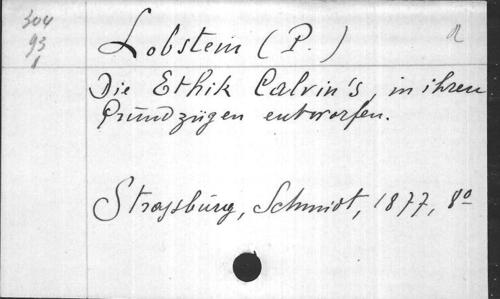 304
93
1
Lobstein (P.)
Die Ethik Calvin's, in ihren
Grundzügen entworfen.
Strassburg, Schmidt, 1877, 8°